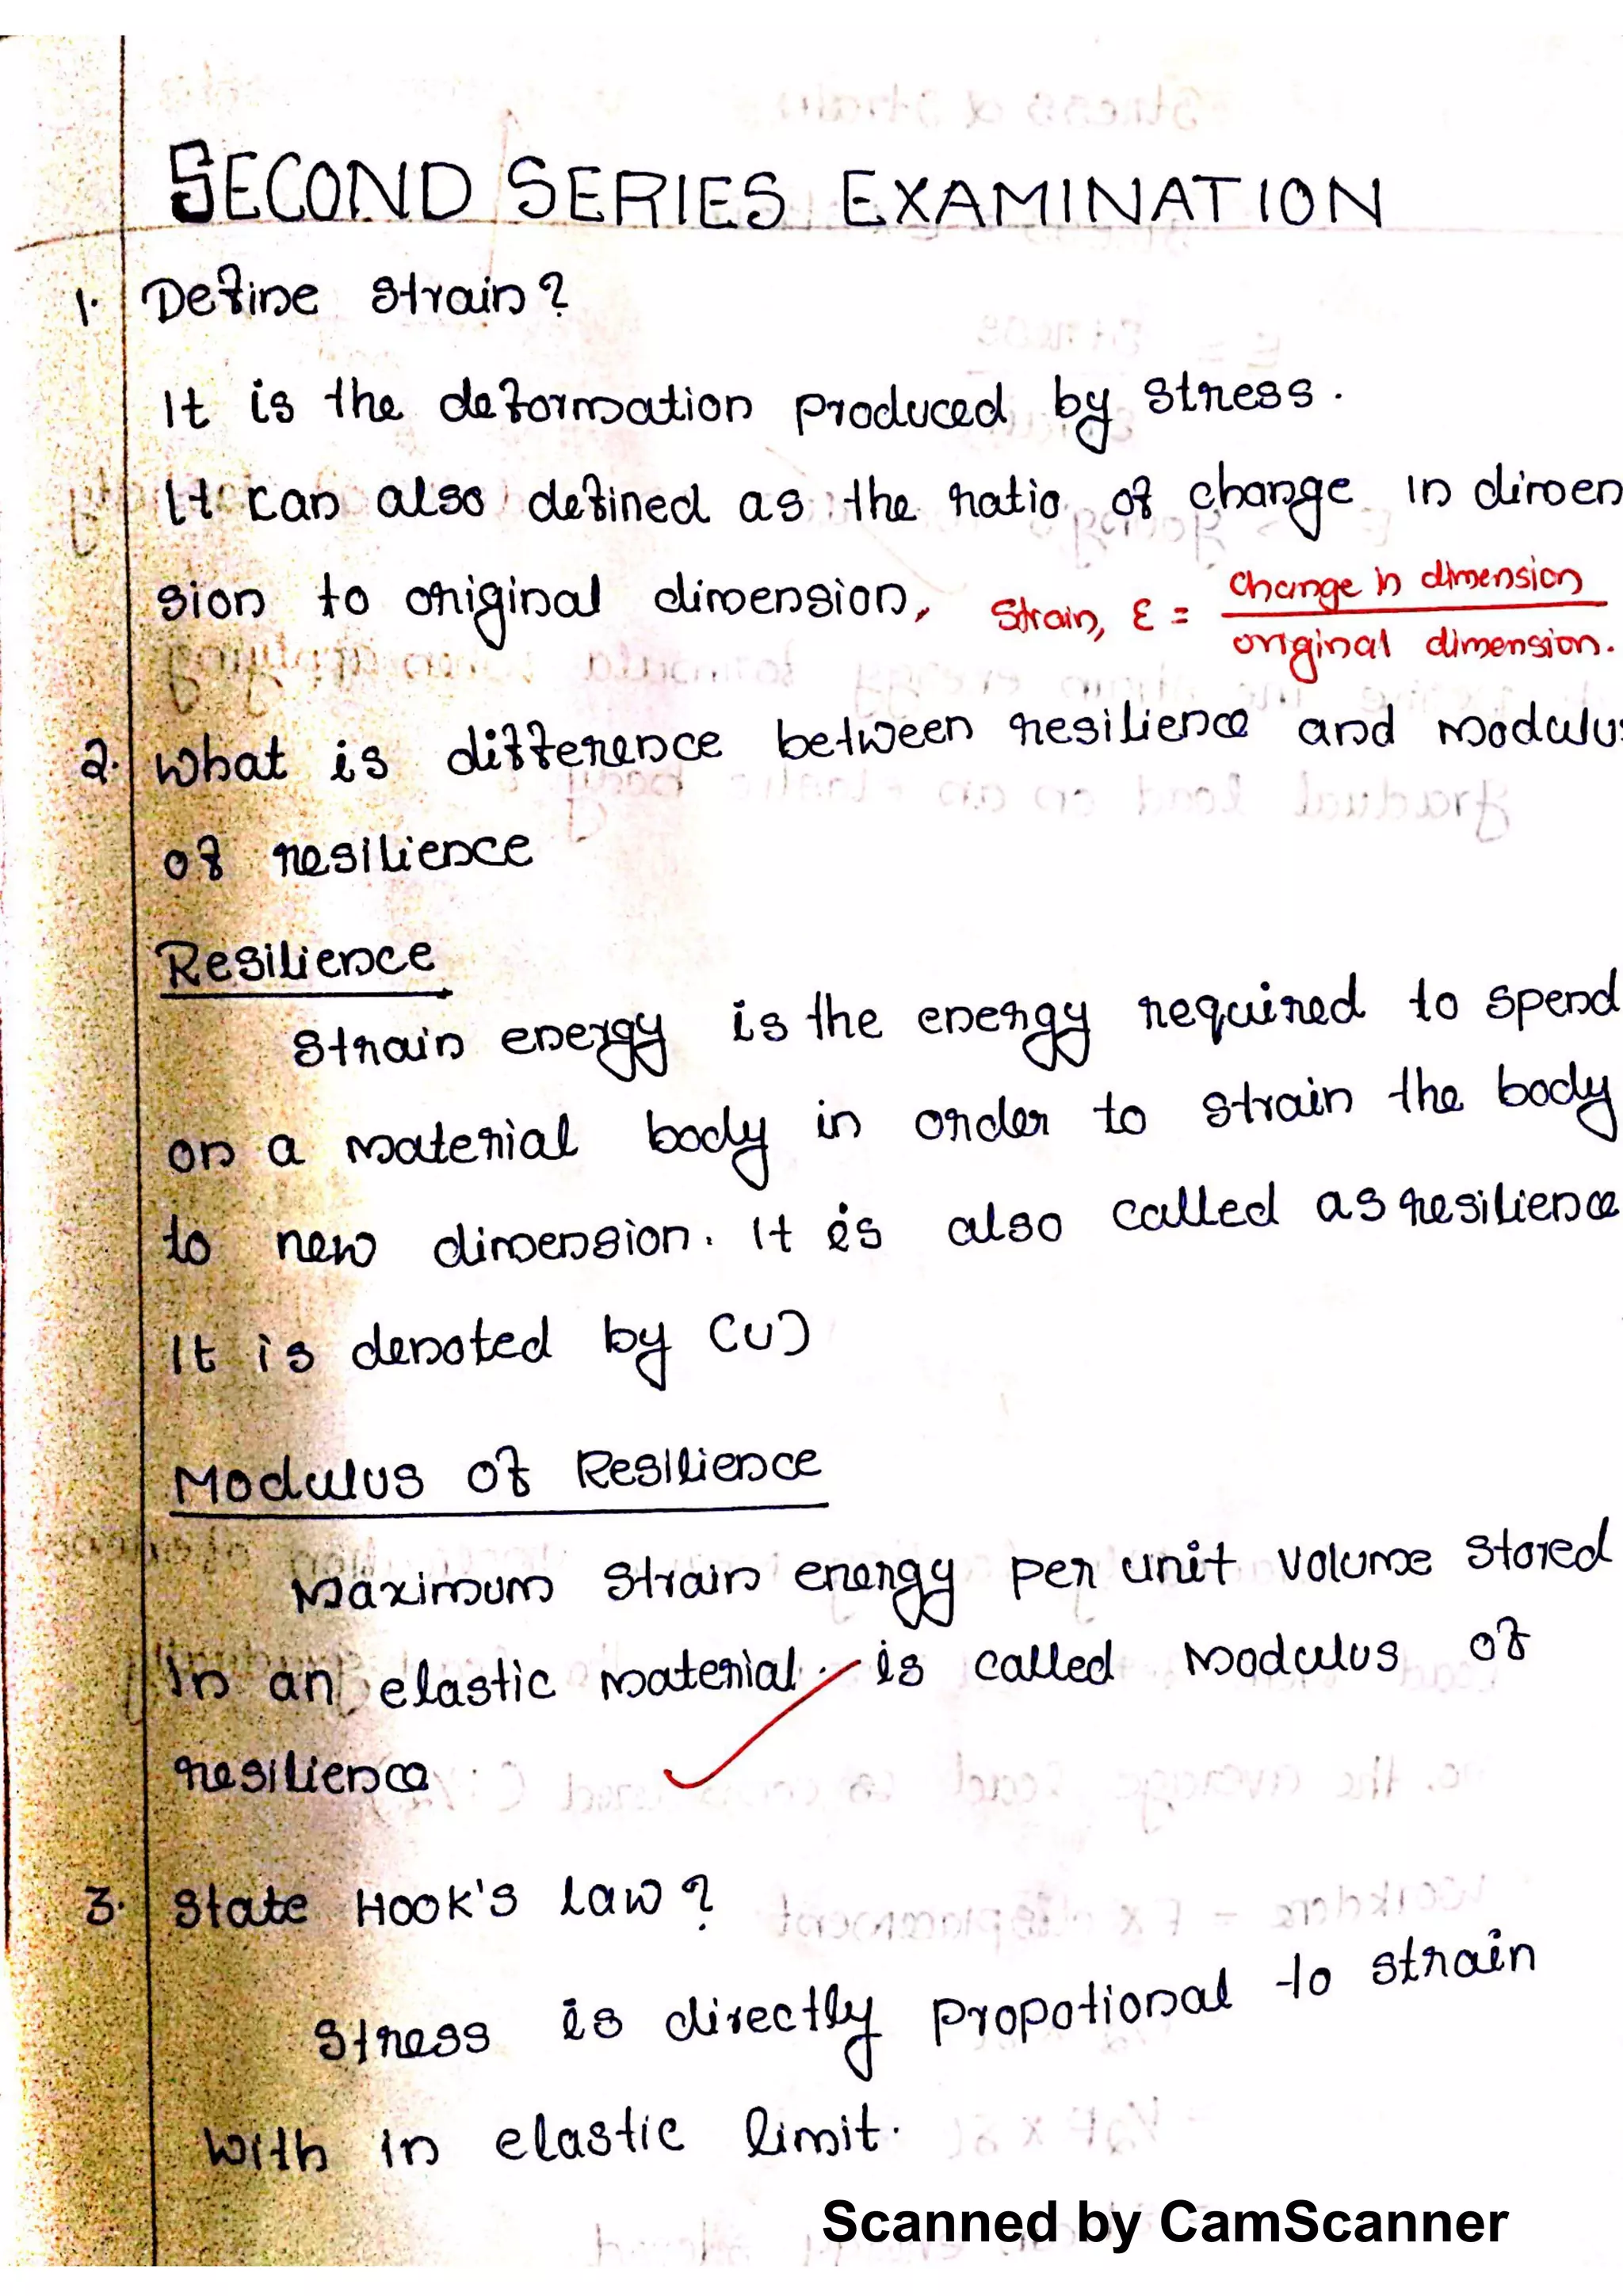 SECOND SERIES EXAMINATION
1. Define strain?
It is the deformation produced by stress.
It can also defined as the ratio of change in dimen
sion to original dimension, Strain, ε = change in dimension / original dimension.
2. What is difference between resilience and modulus
of resilience
Resilience
Strain energy is the energy required to spend
on a material body in order to strain the body
to new dimension. It is also called as resilience
It is denoted by (U)
Modulus of Resilience
Maximum strain energy per unit volume stored
in an elastic material is called modulus of
resilience
3. State Hook's law?
Stress is directly propotional to strain
with in elastic limit.
Scanned by CamScanner